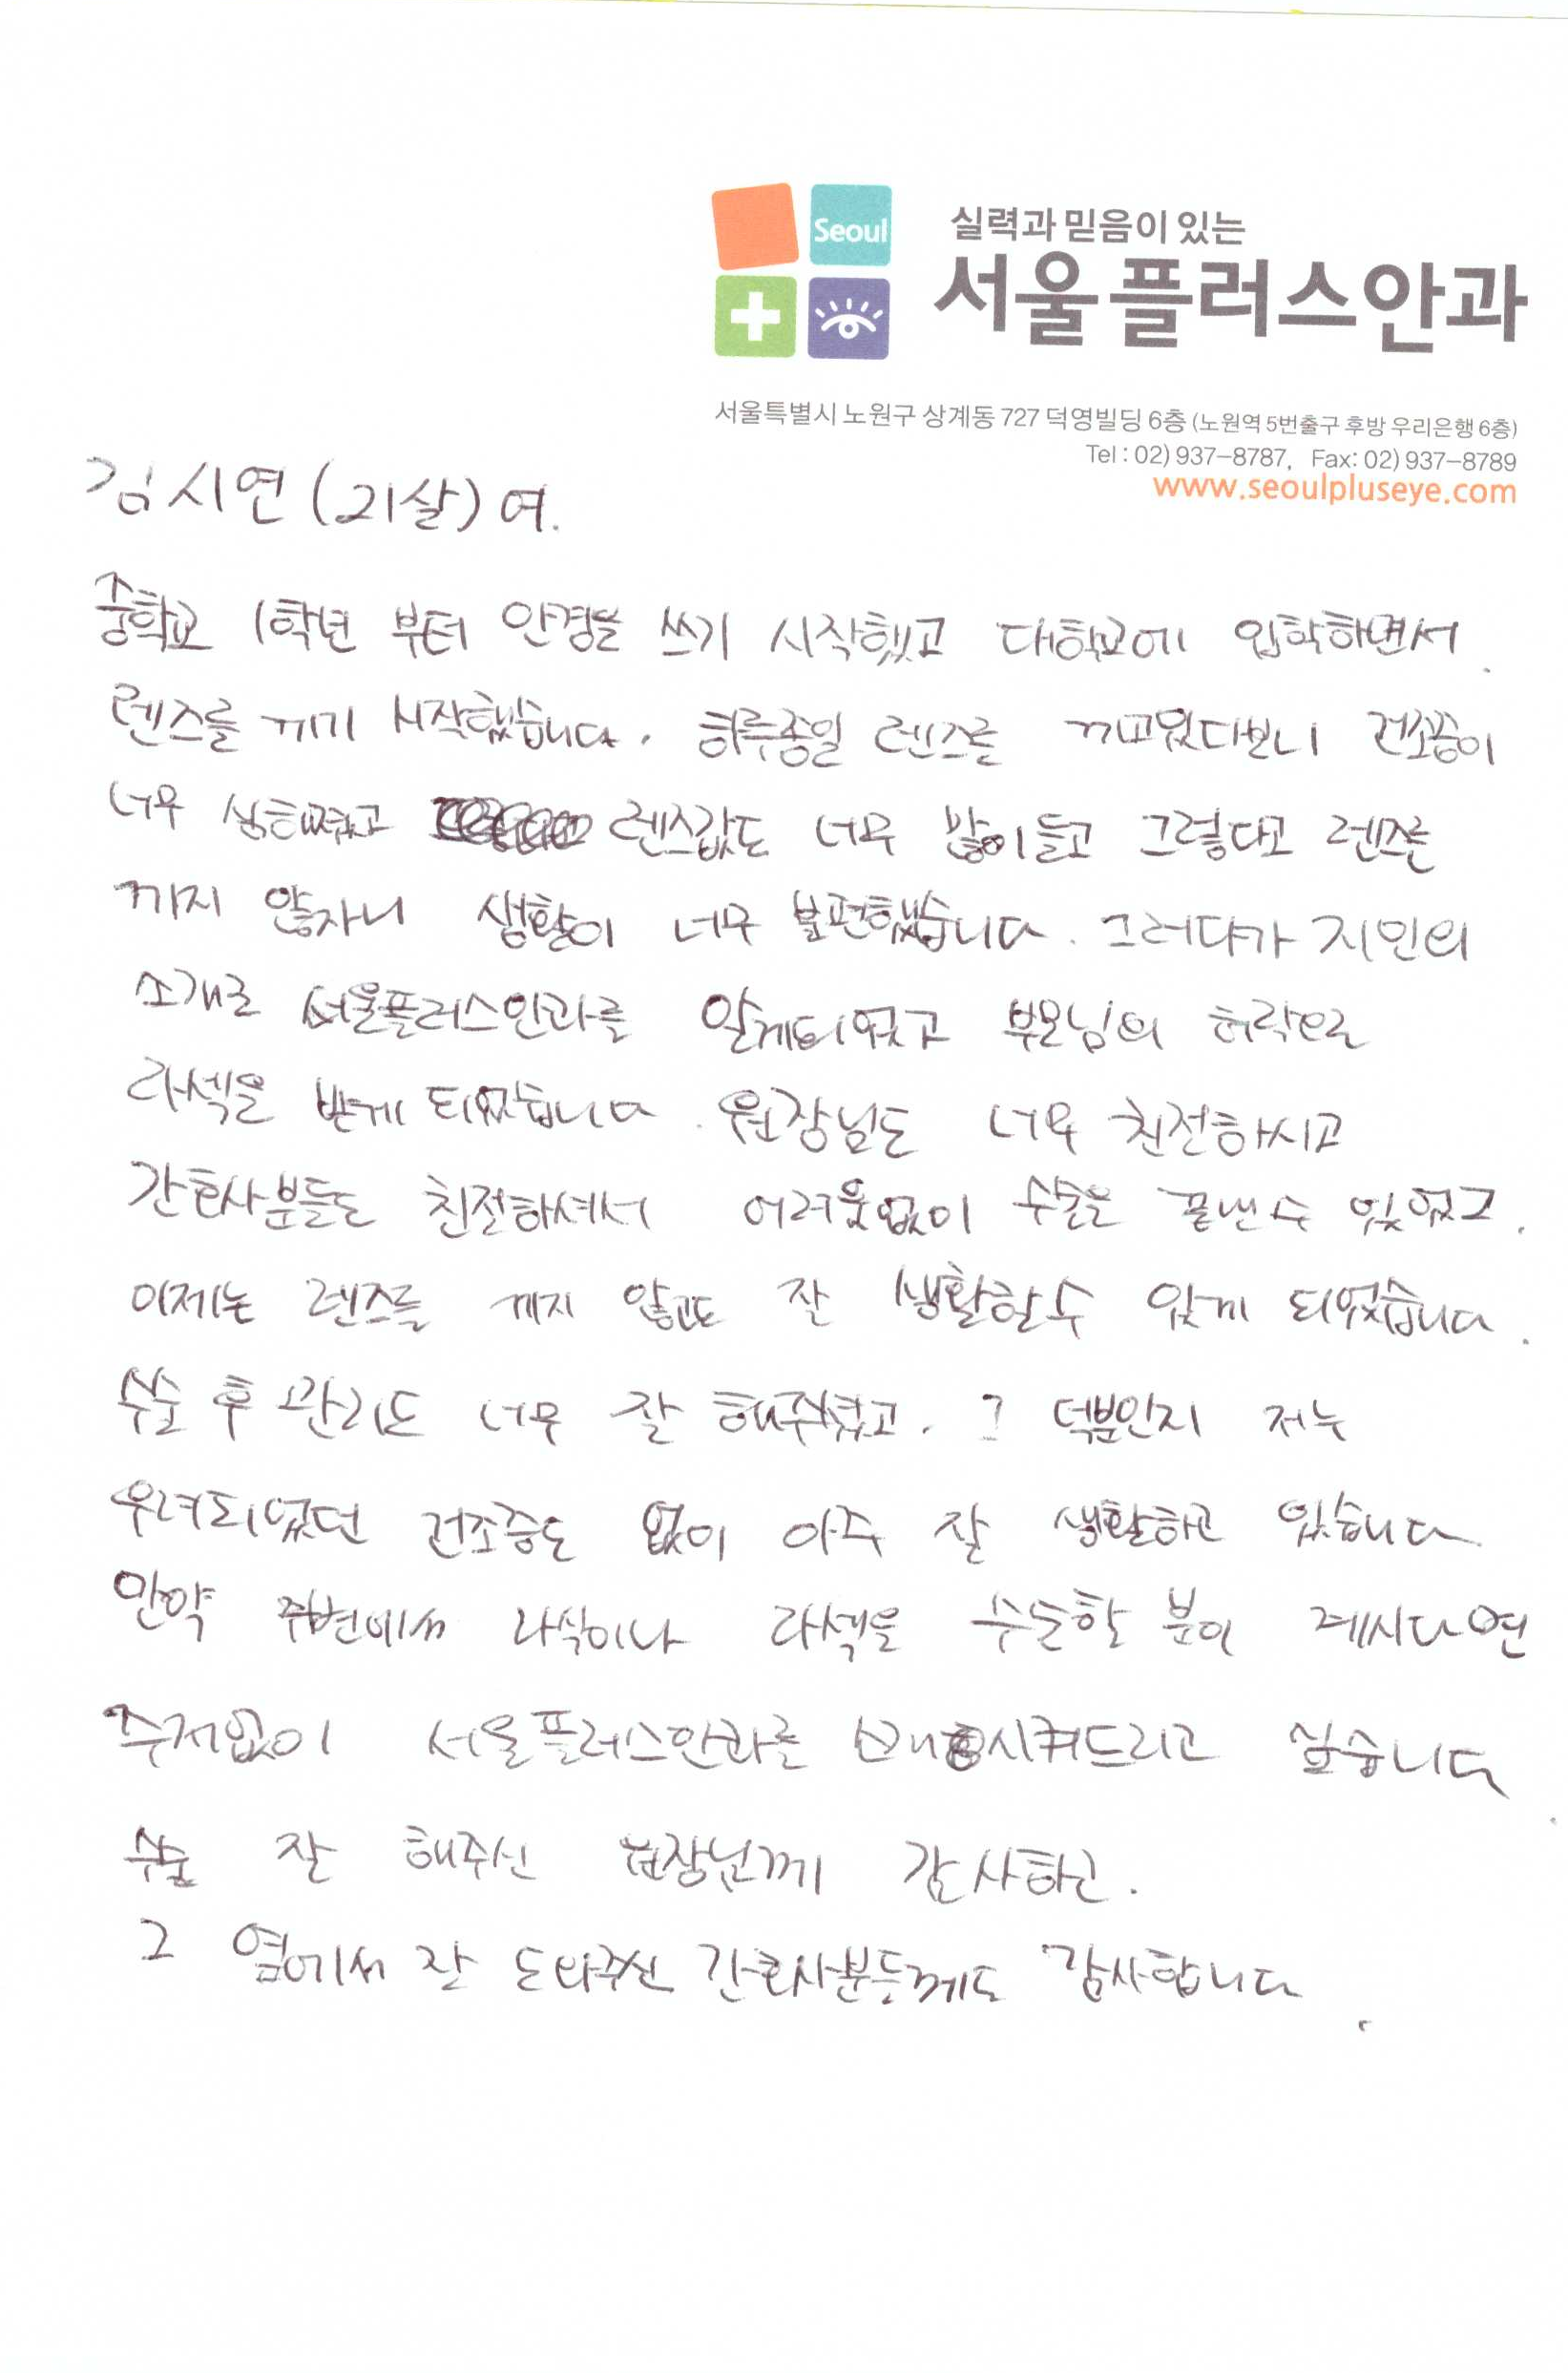 Seoul
실력과 믿음이 있는
서울플러스안과
서울특별시 노원구 상계동 727 덕영빌딩 6층 (노원역 5번출구 후방 우리은행 6층)
Tel : 02) 937-8787, Fax: 02) 937-8789
www.seoulpluseye.com
김시연 (21살) 여.
중학교 1학년 부터 안경을 쓰기 시작했고 대학교에 입학하면서
렌즈를 끼기 시작했습니다. 하루종일 렌즈를 끼고있다보니 건조증이
너무 심해졌고 렌즈값도 너무 많이들고 그렇다고 렌즈를
끼지 않자니 생활이 너무 불편했습니다. 그러다가 지인의
소개로 서울플러스안과를 알게되었고 부모님의 허락으로
라섹을 받게 되었습니다. 원장님도 너무 친절하시고
간호사분들도 친절하셔서 어려움없이 수술을 끝낼수 있었고.
이제는 렌즈를 끼지 않고도 잘 생활할수 있게 되었습니다.
수술 후 관리도 너무 잘 해주셨고. 그 덕분인지 저는
우려되었던 건조증도 없이 아주 잘 생활하고 있습니다
만약 주변에서 라식이나 라섹을 수술할 분이 계시다면
주저없이 서울플러스안과를 시켜드리고 싶습니다.
수술 잘 해주신 원장님께 감사하고.
그 옆에서 잘 도와주신 간호사분들께도 감사합니다.